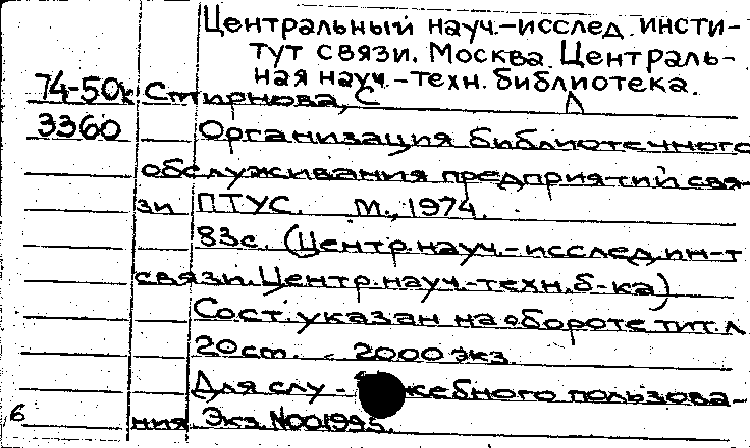 Центральный науч.-исслед. инсти-
тут связи. Москва. Централь-
ная науч.-техн. библиотека.
74-50к Смирнова, С
3360 Организация библиотечного
обслуживания предприятий свя-
зи ПТУС. М., 1974.
83с. (Центр. науч.-исслед. ин-т
связи. Центр. науч.-техн. б-ка)
Сост. указан на обороте тит. л
20 см. 2000 экз.
Для слу-жебного пользова-
6 ния Экз. №001995.